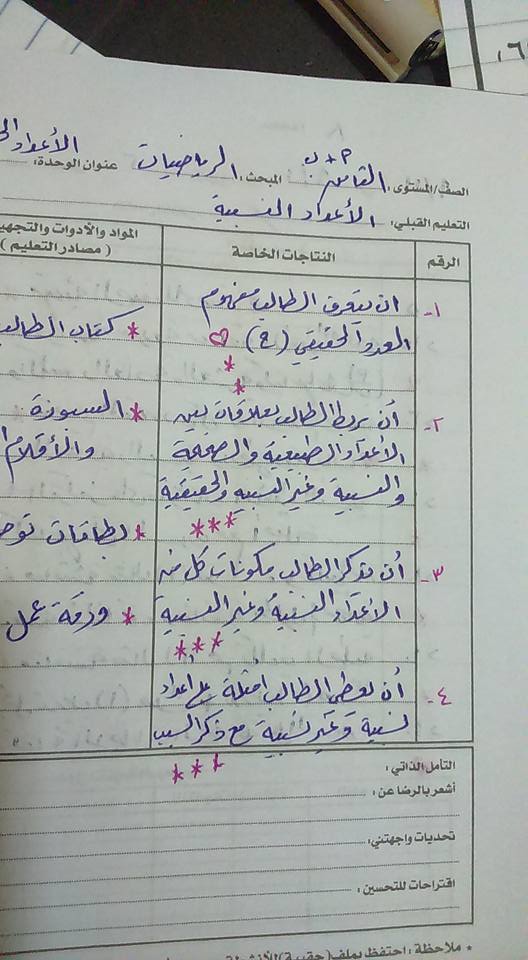 الصف/المستوى: الثامن أ+ب المبحث: الرياضيات عنوان الوحدة: الأعداد
التعليم القبلي: الأعداد النسبية
الرقم النتاجات الخاصة المواد والأدوات والتجهي
( مصادر التعليم )
١- ان يتعرف الطالب مفهوم
العدد الحقيقي (ح)
* كتاب الطالب
٢- أن يربط الطالب بعلاقات بين * السبورة
الأعداد الطبيعية والصحيحة والأقلام
والنسبية وغير النسبية والحقيقية
*** * بطاقات
٣- أن يذكر الطالب مكونات كل من
الأعداد النسبية وغير النسبية * ورقة عمل
***
٤- أن يعطي الطالب أمثلة على أعداد
نسبية وغير نسبية مع ذكر السبب
***
التأمل الذاتي:
أشعر بالرضا عن:
تحديات واجهتني:
اقتراحات للتحسين:
* ملاحظة: احتفظ بملف (حقيبة)